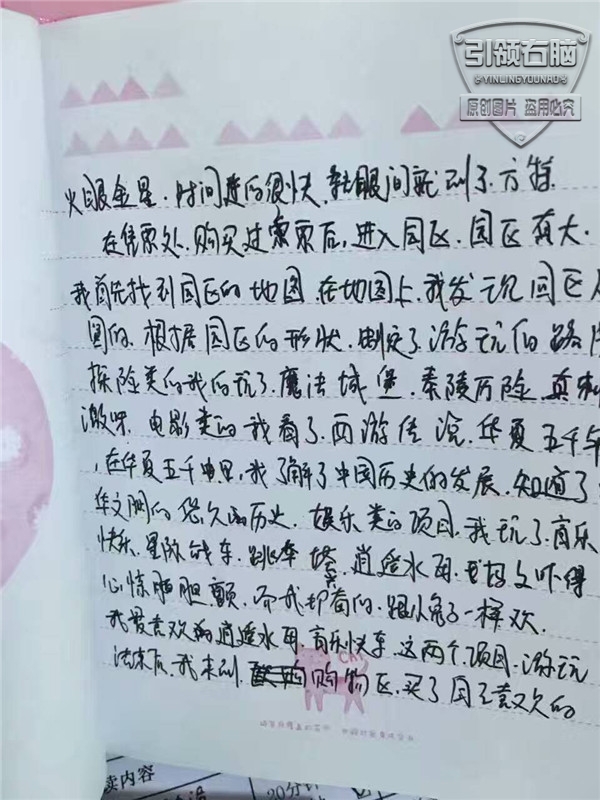 引领右脑
YINLINGYOUNAO
原创图片 盗用必究
火眼金星.时间过的很快,转眼间就到了.方特.
在售票处.购买过票后,进入园区.园区真大.
我首先找到园区的地图.在地图上.我发现园区
圆的.根据园区的形状.制定了游玩的路
探险类的我的玩了.魔法城堡.秦陵历险.真刺
激呀.电影类的我看了.西游传说.华夏五千年
,在华夏五千年里,我了解了中国历史的发展.知道了
华文明的悠久的历史.娱乐类的项目.我玩了.音乐
快乐.星际战车.跳塔.逍遥水雨.吓得
心惊胆颤.而我却.跟小兔子一样欢.
我最喜欢的逍遥水雨.音乐快车.这两个项目.游玩
结束后.我来到.购物区.买了自己喜欢的
chi
读内容
20分